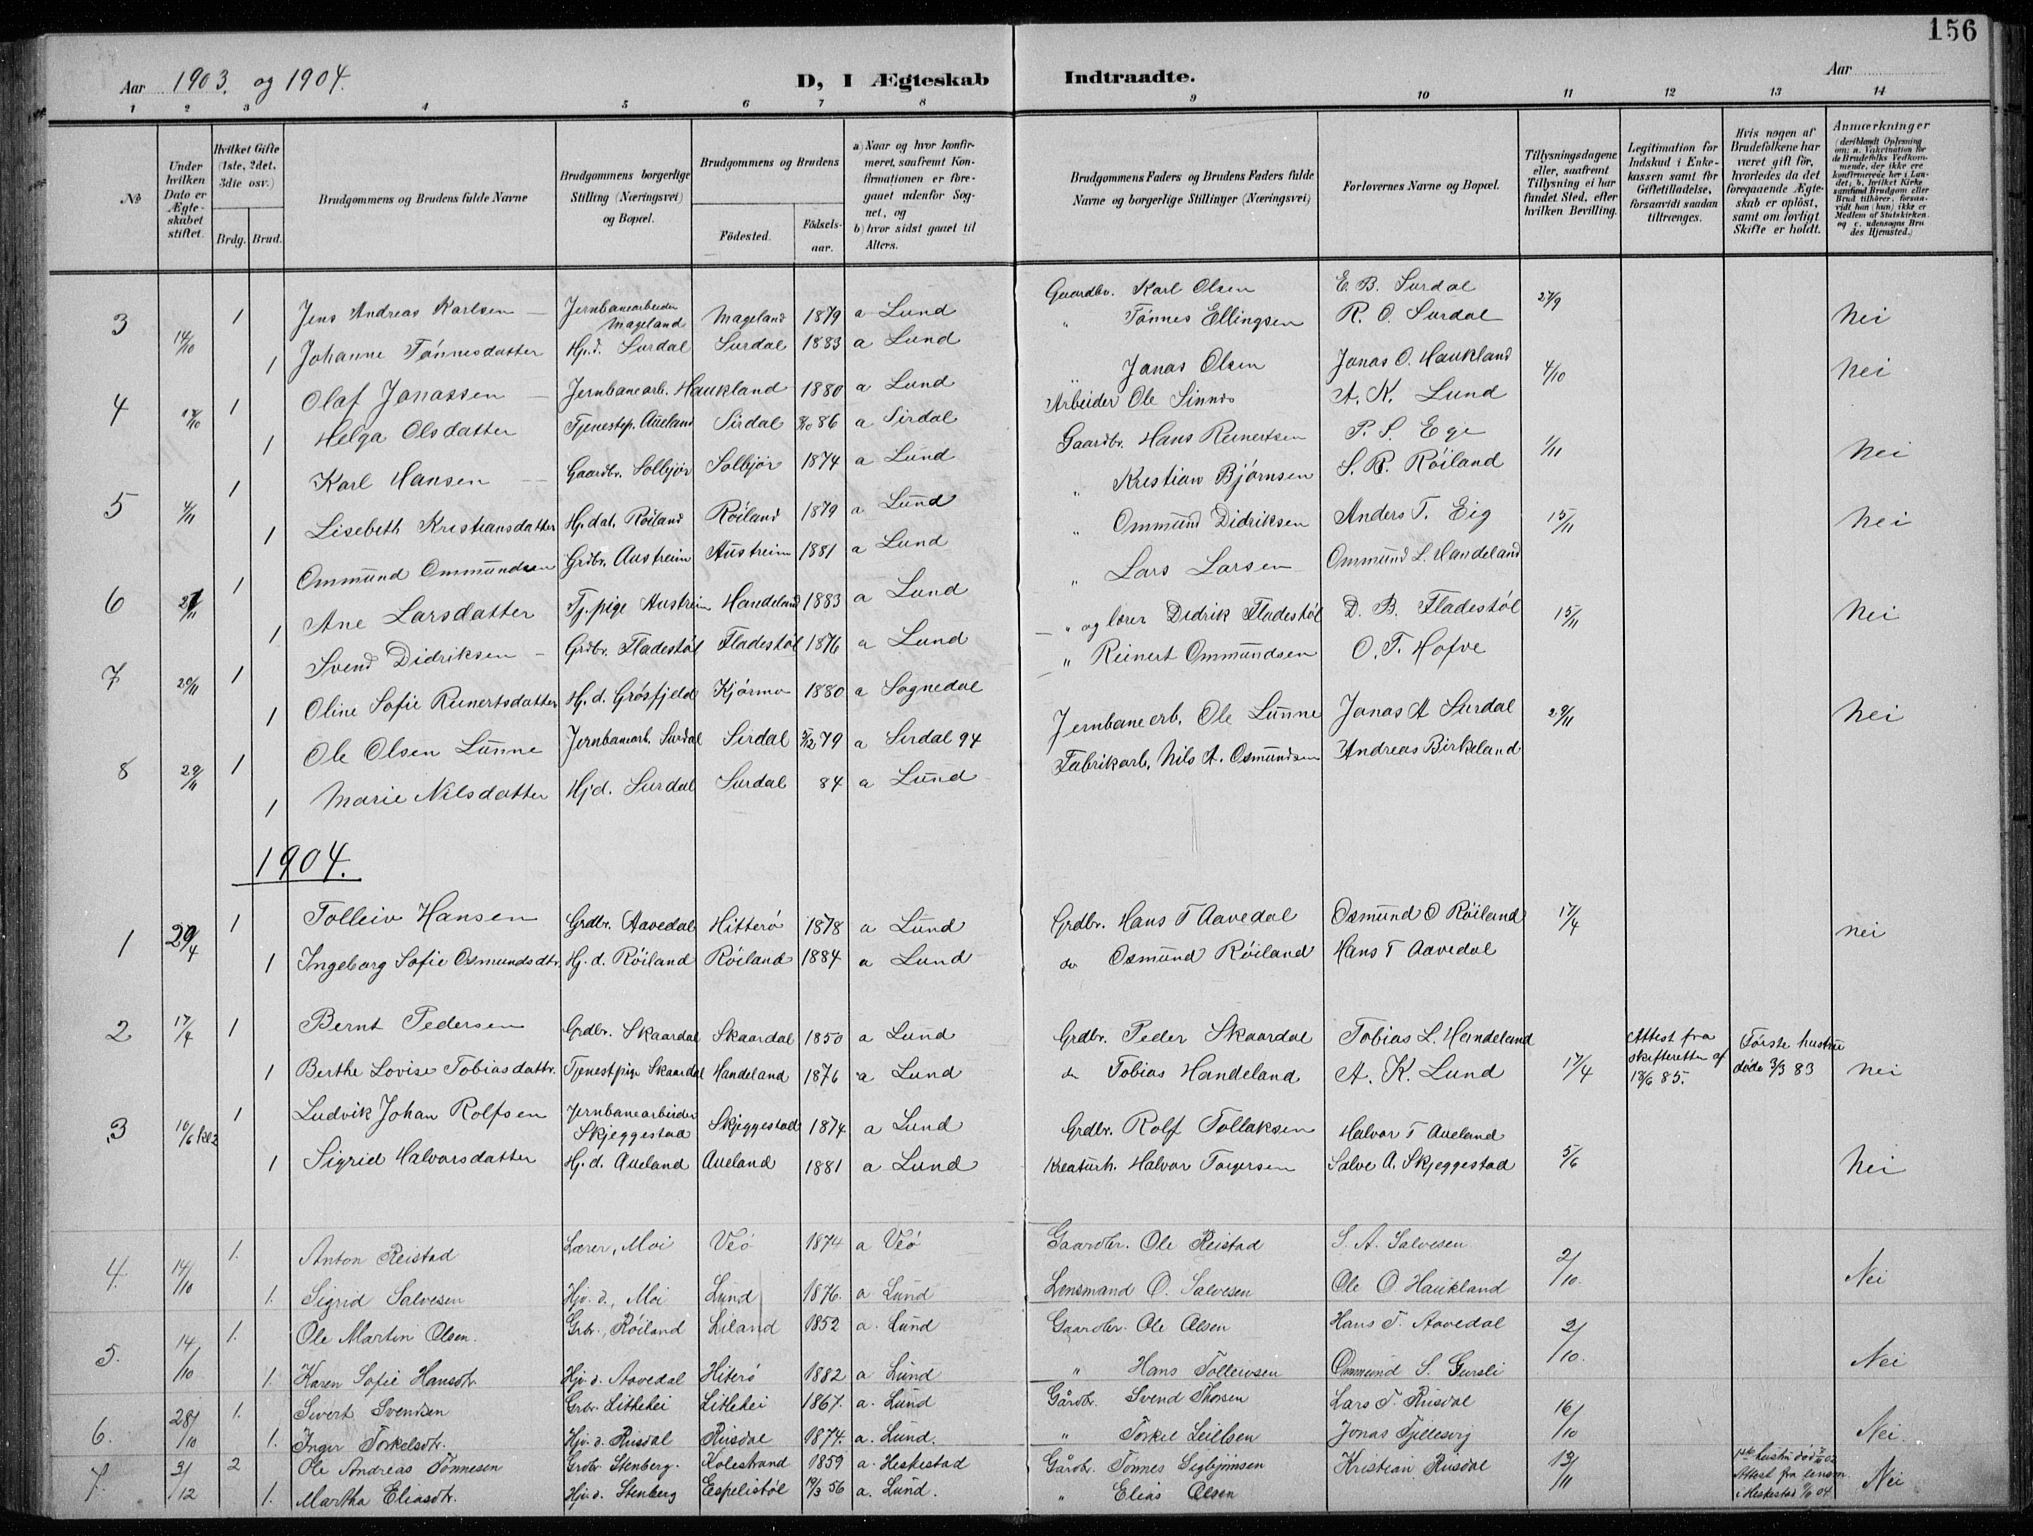 156
Aar 1903. og 1904.
D, I Ægteskab Indtraadte.
Aar
1 2 3 4 5 6 7 8 9 10 11 12 13 14
No
Under hvilken Dato er Ægteskabet stiftet.
Hvilket Gifte (1ste, 2det, 3die osv.)
Brdg. Brud.
Brudgommens og Brudens fulde Navne
Brudgommens borgerlige Stilling (Næringsvei) og Bopæl.
Brudgommens og Brudens
Fødested. Fødselsaar.
a) Naar og hvor konfirmeret, saafremt Konfirmationen er foregaaet udenfor Sognet, og
b) hvor sidst gaaet til Alters.
Brudgommens Faders og Brudens Faders fulde Navne og borgerlige Stillinger (Næringsvei)
Forlovernes Navne og Bopæl.
Tillysningsdagene eller, saafremt Tillysning ei har fundet Sted, efter hvilken Bevilling.
Legitimation for Indskud i Enkekassen samt for Giftetilladelse, forsaavidt saadan tiltrænges.
Hvis nogen af Brudefolkene har været gift før, hvorledes da det foregaaende Ægteskab er opløst, samt om lovligt Skifte er holdt.
Anmærkninger (deriblandt Oplysning om: a. Vakcination for de Brudefolks Vedkommende, der ikke ere konfirmerede her i Landet; b. hvilket Kirkesamfund Brudgom eller Brud tilhører, forsaavidt han (hun) ikke er Medlem af Statskirken. og c. udensogns Brudes Hjemsted.)
3 14/10 1 Jens Andreas Karlsen Jernbanearbeider Mageland Mageland 1879 a Lund Gaardbr. Karl Olsen E. B. Surdal 27/9 Nei
1 Johanne Tønnesdatter Hj.d. Surdal Surdal 1883 a Lund " Tønnes Ellingsen R. O. Surdal
4 17/10 1 Olaf Jonassen Jernbanearb. Haukland 1880 a Lund " Jonas Olsen Jonas O. Haukland 4/10 Nei
1 Helga Olsdatter Tjenestep. Aueland Sirdal 86 a Sirdal Arbeider Ole Sinnes A. K. Lund
5 4/11 1 Karl Hansen Gaardbr. Solbjør Solbjør 1874 a Lund Gaardbr. Hans Reinertsen P. S. Ege 1/11 Nei
1 Lisebeth Kristiansdatter Hj.dat. Røiland Røiland 1879 a Lund " Kristian Bjørnsen S. R. Røiland
6 27/11 1 Ommund Ommundsen Grdbr. Austreim Austreim 1881 a Lund " Ommund Didriksen Anders T. Eig 15/11 Nei
1 Ane Larsdatter Tj.pige Austreim Handeland 1883 a Lund " Lars Larsen Ommund L. Handeland
7 29/11 1 Svend Didriksen Grdbr. Fladestøl Fladestøl 1876 a Lund " og lærer Didrik Fladestøl D. B. Fladestøl 15/11 Nei
1 Oline Sofie Reinertsdatter Hj.d. Grøsfjeld Kjørmo 1880 a Sognedal " Reinert Ommundsen O. T. Hofve
8 29/11 1 Ole Olsen Lunne Jernbanearb. Surdal Sirdal 79 a Sirdal 94 Jernbanearb. Ole Lunne Jonas A Surdal 29/11 Nei
1 Marie Nilsdatter Hjd. Surdal Surdal 84 a Lund Fabrikarb. Nils A. Osmundsen Andreas Birkeland
1904.
1 29/4 1 Tolleiv Hansen Grdbr. Aavedal Hitterø 1878 a Lund Grdbr. Hans T Aavedal Osmund O Røiland 17/4 nei
1 Ingeborg Sofie Osmundsdtr. Hj.d. Røiland Røiland 1884 a Lund do Osmund Røiland Hans T Aavedal
2 17/4 1 Bernt Pedersen Grdbr. Skaardal Skaardal 1850 a Lund Grdbr. Peder Skaardal Tobias L. Handeland Attest fra skifteretten af 18/6 85. Første hustru døde 3/3 83
1 Berthe Lovise Tobiasdattr. Tjenestpige Skaardal Handeland 1876 a Lund do Tobias Handeland A. K. Lund 17/4 nei
3 10/6 kl 2 1 Ludvik Johan Rolfsen Jernbanearbeider Skjeggestad Skjeggestad 1874 a Lund Grdbr. Rolf Tollaksen Halvor T Aueland 5/6 Nei
1 Sigrid Halvorsdatter Hj.d. Aueland Aueland 1881 a Lund Kreaturh. Halvor Torgersen Salve A. Skjeggestad
4. 14/10 1. Anton Reistad Lærer, Moi Veø 1874 a Veø Gaardbr. Ole Reistad S. A. Salvesen 2/10. Nei
1. Sigrid Salvesen Hjv. d., Moi Lund 1876. a Lund Lensmand O. Salvesen Ole O Haukland
5. 14/10 1. Ole Martin Olsen. Grbr., Røiland Liland 1852 a. Lund Gaardbr. Ole Olsen Hans T. Aavedal 2/10. Nei
1. Karen Sofie Hansdtr. Hjv. d. Aavedal Hiterø 1882 a Lund " Hans Tolleivsen Ommund S. Gursli
6. 28/10 1. Sivert Svendsen Grbr. Litlehei Litlehei 1867. a. Lund Gårdbr. Svend Thorsen Lars T. Rusdal 16/10 Nei.
1. Inger Torkelsdtr. Hjv. d. Rusdal Rusdal 1874. a. Lund. " Torkel Jonas Fjellesvij
7. 3/12 2 Ole Andreas Tønnesen Grdbr. Stenberg. Kolestrand 1859 a. Heskestad Gårdbr. Tønnes Sigbjørnsen Kristian Rusdal 13/11 1ste hustru død 02 Attest fra lensm. i Heskestad 04 Nei
1. Martha Eliasdtr. Hjv. d. Stenberg Espelistøl 56 a. Lund. " Elias Olsen